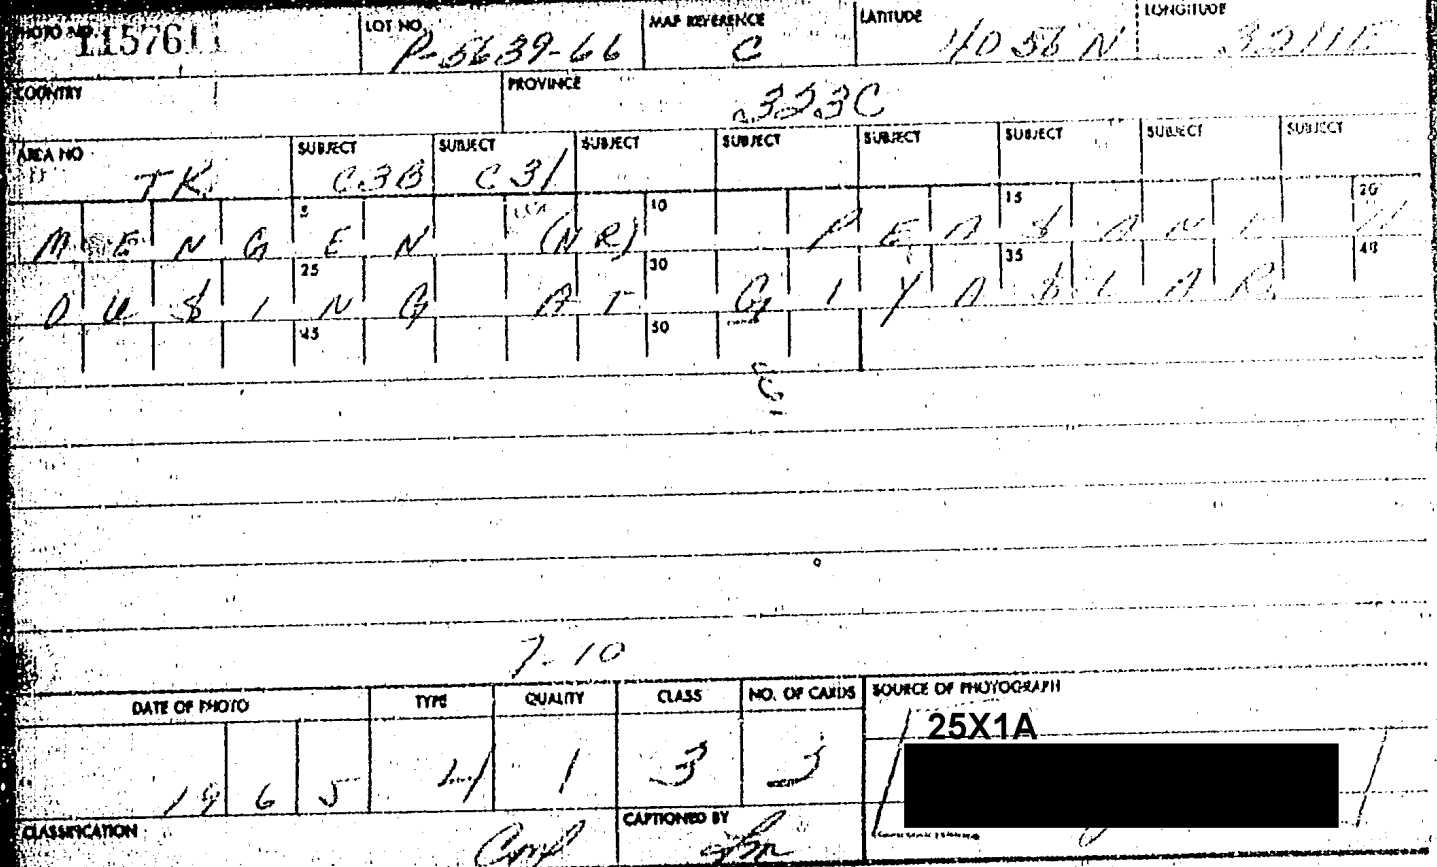 PHOTO NO. 1157611 LOT NO. P-5639-66 MAP REFERENCE C LATITUDE 4056N LONGITUDE 3211E
COUNTRY PROVINCE 323C
AREA NO TK SUBJECT C3B SUBJECT C31 SUBJECT SUBJECT SUBJECT SUBJECT SUBJECT SUBJECT
5 10 15 20
MENGEN (NR) PEASANT H
25 30 35 40
OUSING AT GIYASLAR
45 50
7-10
DATE OF PHOTO TYPE QUALITY CLASS NO. OF CARDS SOURCE OF PHOTOGRAPH
1965 4 1 3 3 25X1A
CLASSIFICATION Conf CAPTIONED BY